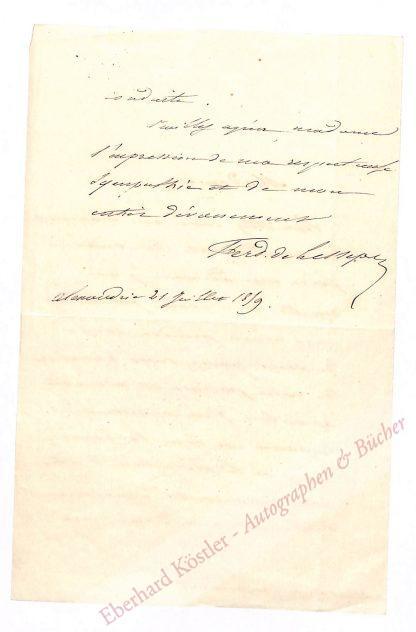 conduite.
Veuillez agréer madame
l'impression de ma respectueuse
sympathie et de mon
entier dévouement
Ferd. de Lesseps
alexandrie 21 Juillet 1859.
Eberhard Köstler - Autographen & Bücher